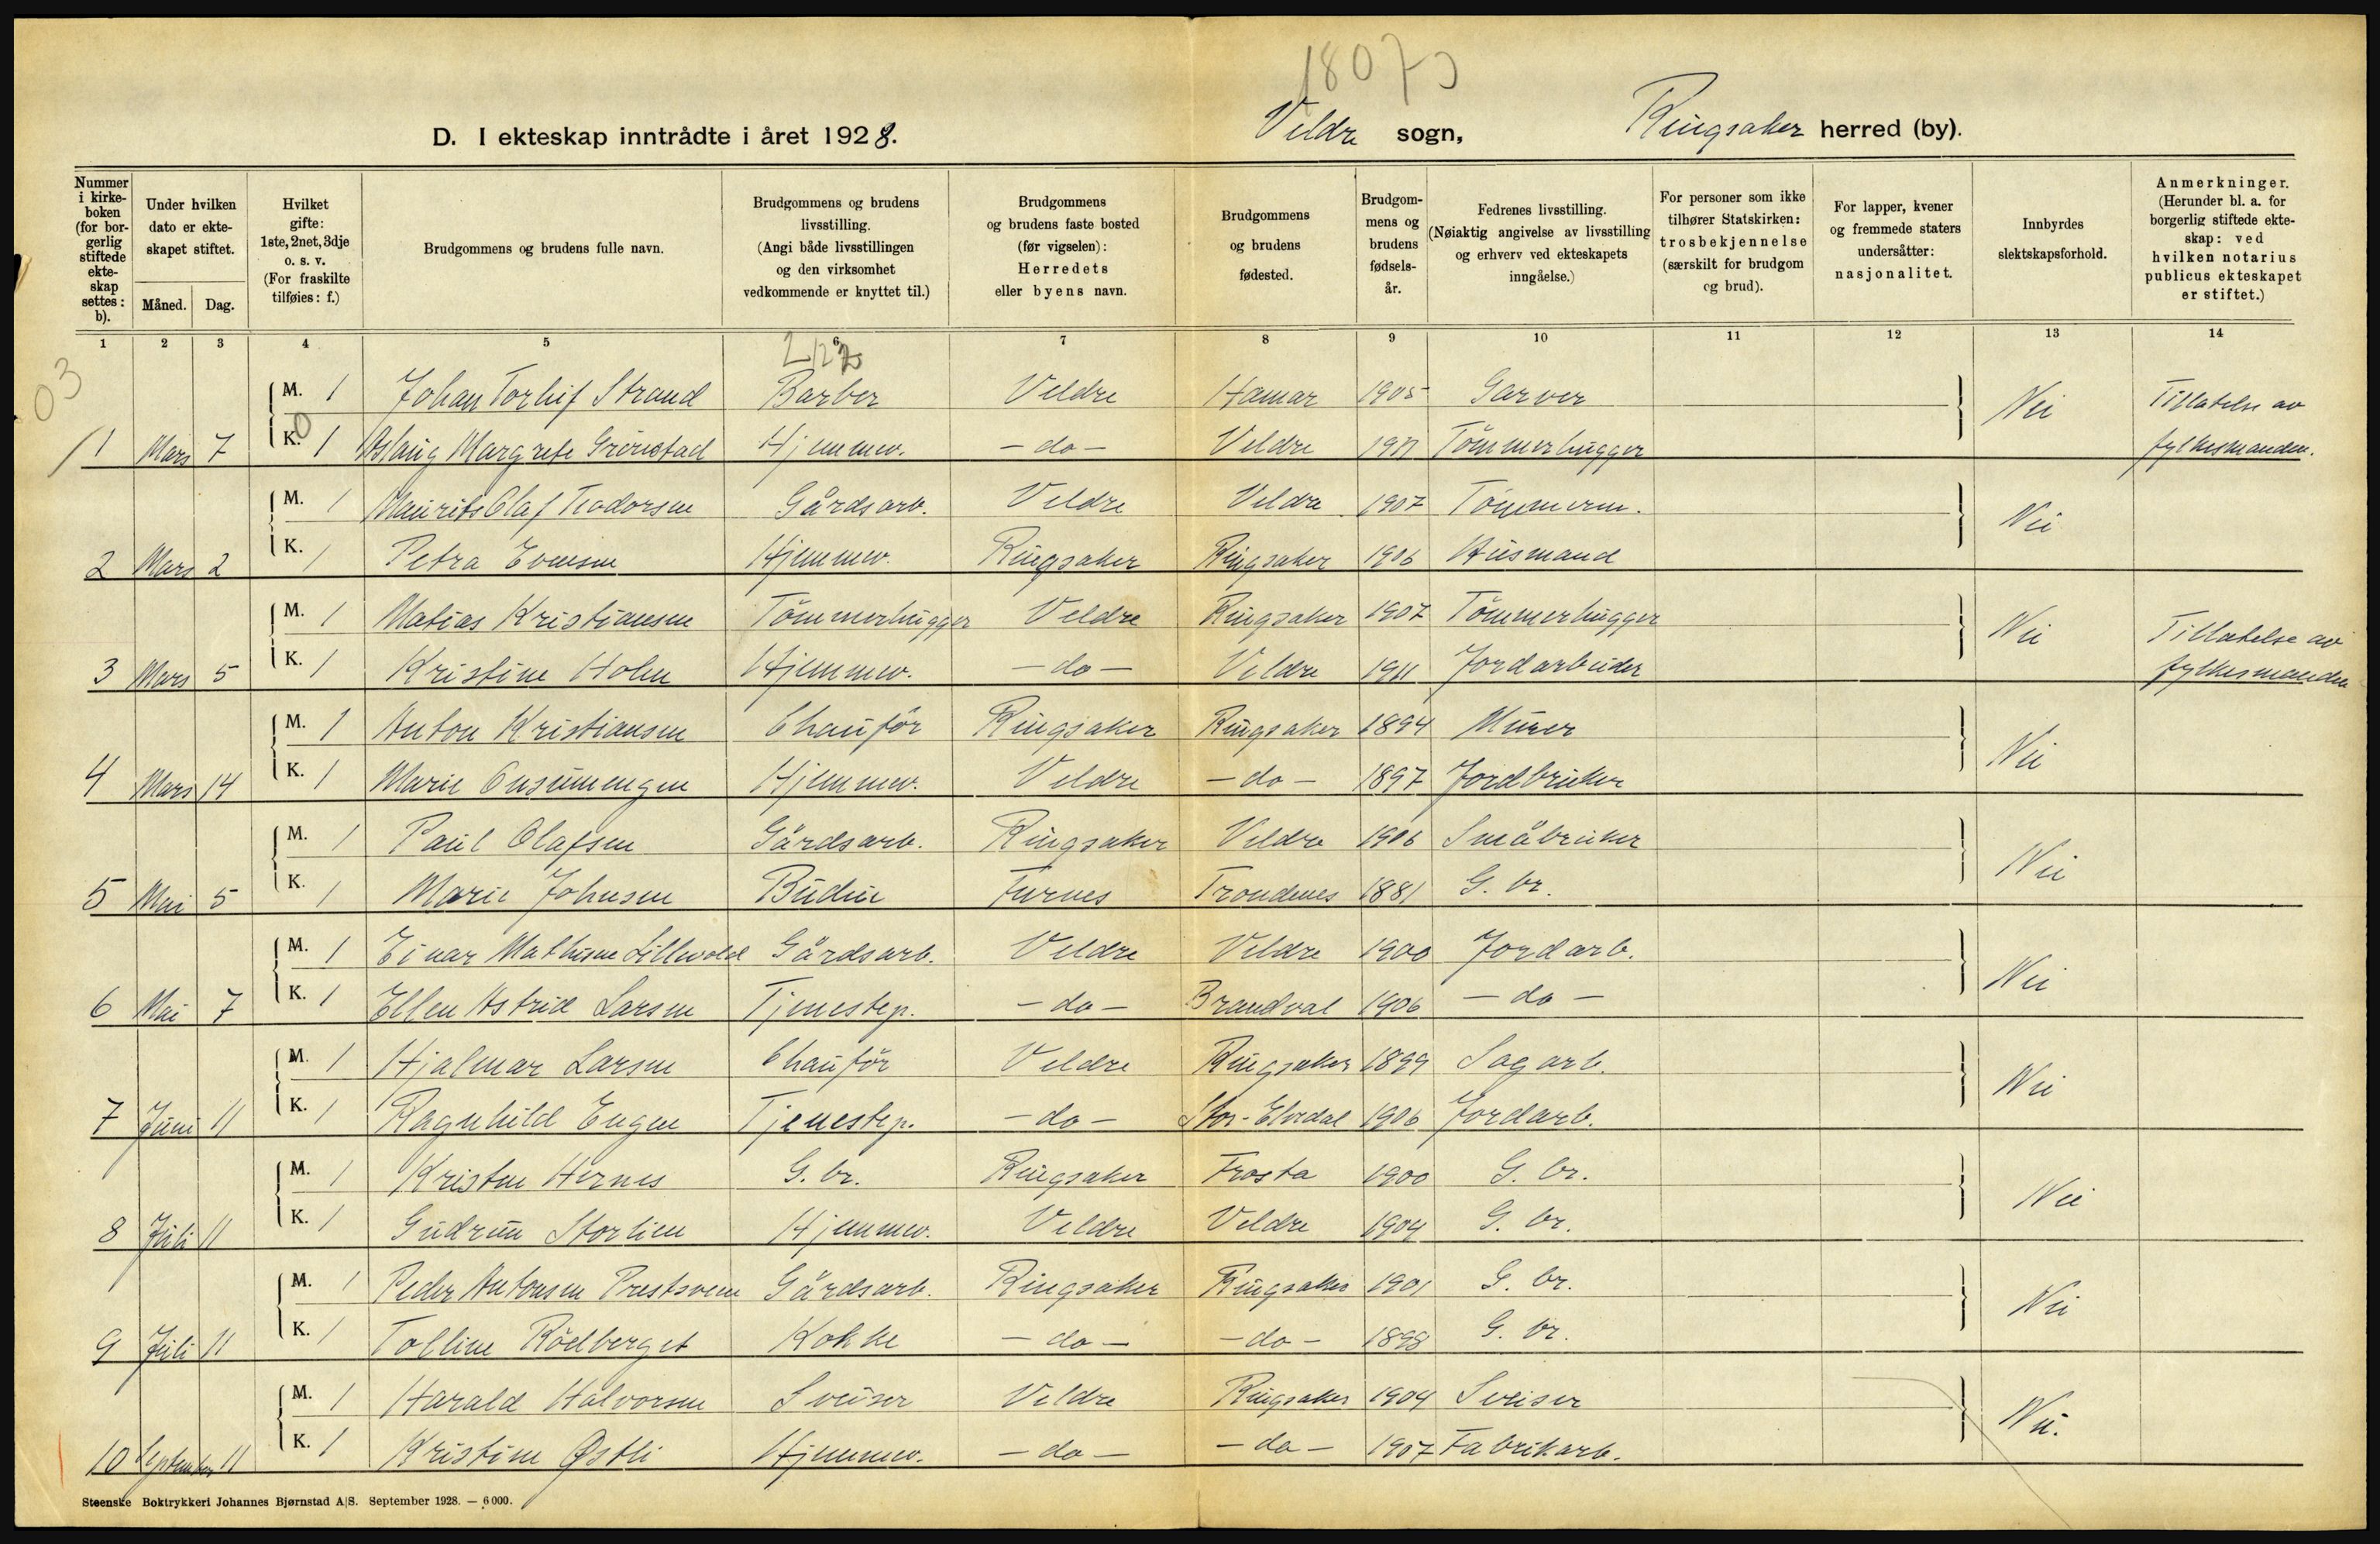 18073
D. I ekteskap inntrådte i året 1928.
Veldre sogn, Ringsaker herred (by).
Nummer i kirkeboken (for borgerlig stiftede ekteskap settes: b).
Under hvilken dato er ekteskapet stiftet.
Måned. Dag.
Hvilket gifte: 1ste, 2net, 3dje o. s. v. (For fraskilte tilføies: f.)
Brudgommens og brudens fulle navn.
Brudgommens og brudens livsstilling. (Angi både livsstillingen og den virksomhet vedkommende er knyttet til.)
Brudgommens og brudens faste bosted (før vigselen): Herredets eller byens navn.
Brudgommens og brudens fødested.
Brudgommens og brudens fødselsår.
Fedrenes livsstilling. (Nøiaktig angivelse av livsstilling og erhverv ved ekteskapets inngåelse.)
For personer som ikke tilhører Statskirken: trosbekjennelse (særskilt for brudgom og brud).
For lapper, kvener og fremmede staters undersåtter: nasjonalitet.
Innbyrdes slektskapsforhold.
Anmerkninger. (Herunder bl. a. for borgerlig stiftede ekteskap: ved hvilken notarius publicus ekteskapet er stiftet.)
1 2 3 4 5 6 7 8 9 10 11 12 13 14
03
M. 1 Johan Torleif Strand Barber Veldre Hamar 1905 Garver Nei Tillatelse av
1 Mars 7 K. 1 Aslaug Margrete Grönstad Hjemmev. - do - Veldre 1911 Tömmerhugger fylkesmanden.
M. 1 Maurits Olaf Teodorsen Gårdsarb. Veldre Veldre 1907 Tömmerm. Nei
2 Mars 2 K. 1 Petra Evensen Hjemmev. Ringsaker Ringsaker 1906 Husmand
M. 1 Matias Kristiansen Tömmerhugger Veldre Ringsaker 1907 Tömmerhugger Nei Tillatelse av
3 Mars 5 K. 1 Kristine Holen Hjemmev. - do - Veldre 1911 Jordarbeider fylkesmanden
M. 1 Anton Kristiansen Chauför Ringsaker Ringsaker 1894 Murer Nei
4 Mars 14 K. 1 Marie Onsumengen Hjemmev. Veldre - do - 1897 Jordbruker
M. 1 Paul Olafsen Gårdsarb. Ringsaker Veldre 1906 Småbruker Nei
5 Mai 5 K. 1 Marie Johnsen Budeie Furnes Trondenes 1881 G. br.
M. 1 Einar Mathisen Lillevold Gårdsarb. Veldre Veldre 1900 Jordarb. Nei
6 Mai 7 K. 1 Ellen Astrid Larsen Tjenestep. - do - Brandval 1906 - do -
M. 1 Hjalmar Larsen Chauför Veldre Ringsaker 1899 Sagarb. Nei
7 Juni 11 K. 1 Ragnhild Engen Tjenestep. - do - Stor-Elvedal 1906 Jordarb.
M. 1 Kristen Hernes G. br. Ringsaker Frosta 1900 G. br. Nei
8 Juli 11 K. 1 Gudrun Storlien Hjemmev. Veldre Veldre 1904 G. br.
M. 1 Peder Antonsen Prestsveen Gårdsarb. Ringsaker Ringsaker 1901 G. br. Nei
9 Juli 11 K. 1 Tolline Röelberget Kokke - do - - do - 1898 G. br.
M. 1 Harald Halvorsen Sveiser Veldre Ringsaker 1904 Sveiser Nei.
10 September 11 K. 1 Kristine Østli Hjemmev. - do - - do - 1907 Fabrikarb.
Steenske Boktrykkeri Johannes Bjørnstad A|S. September 1928. — 6000.